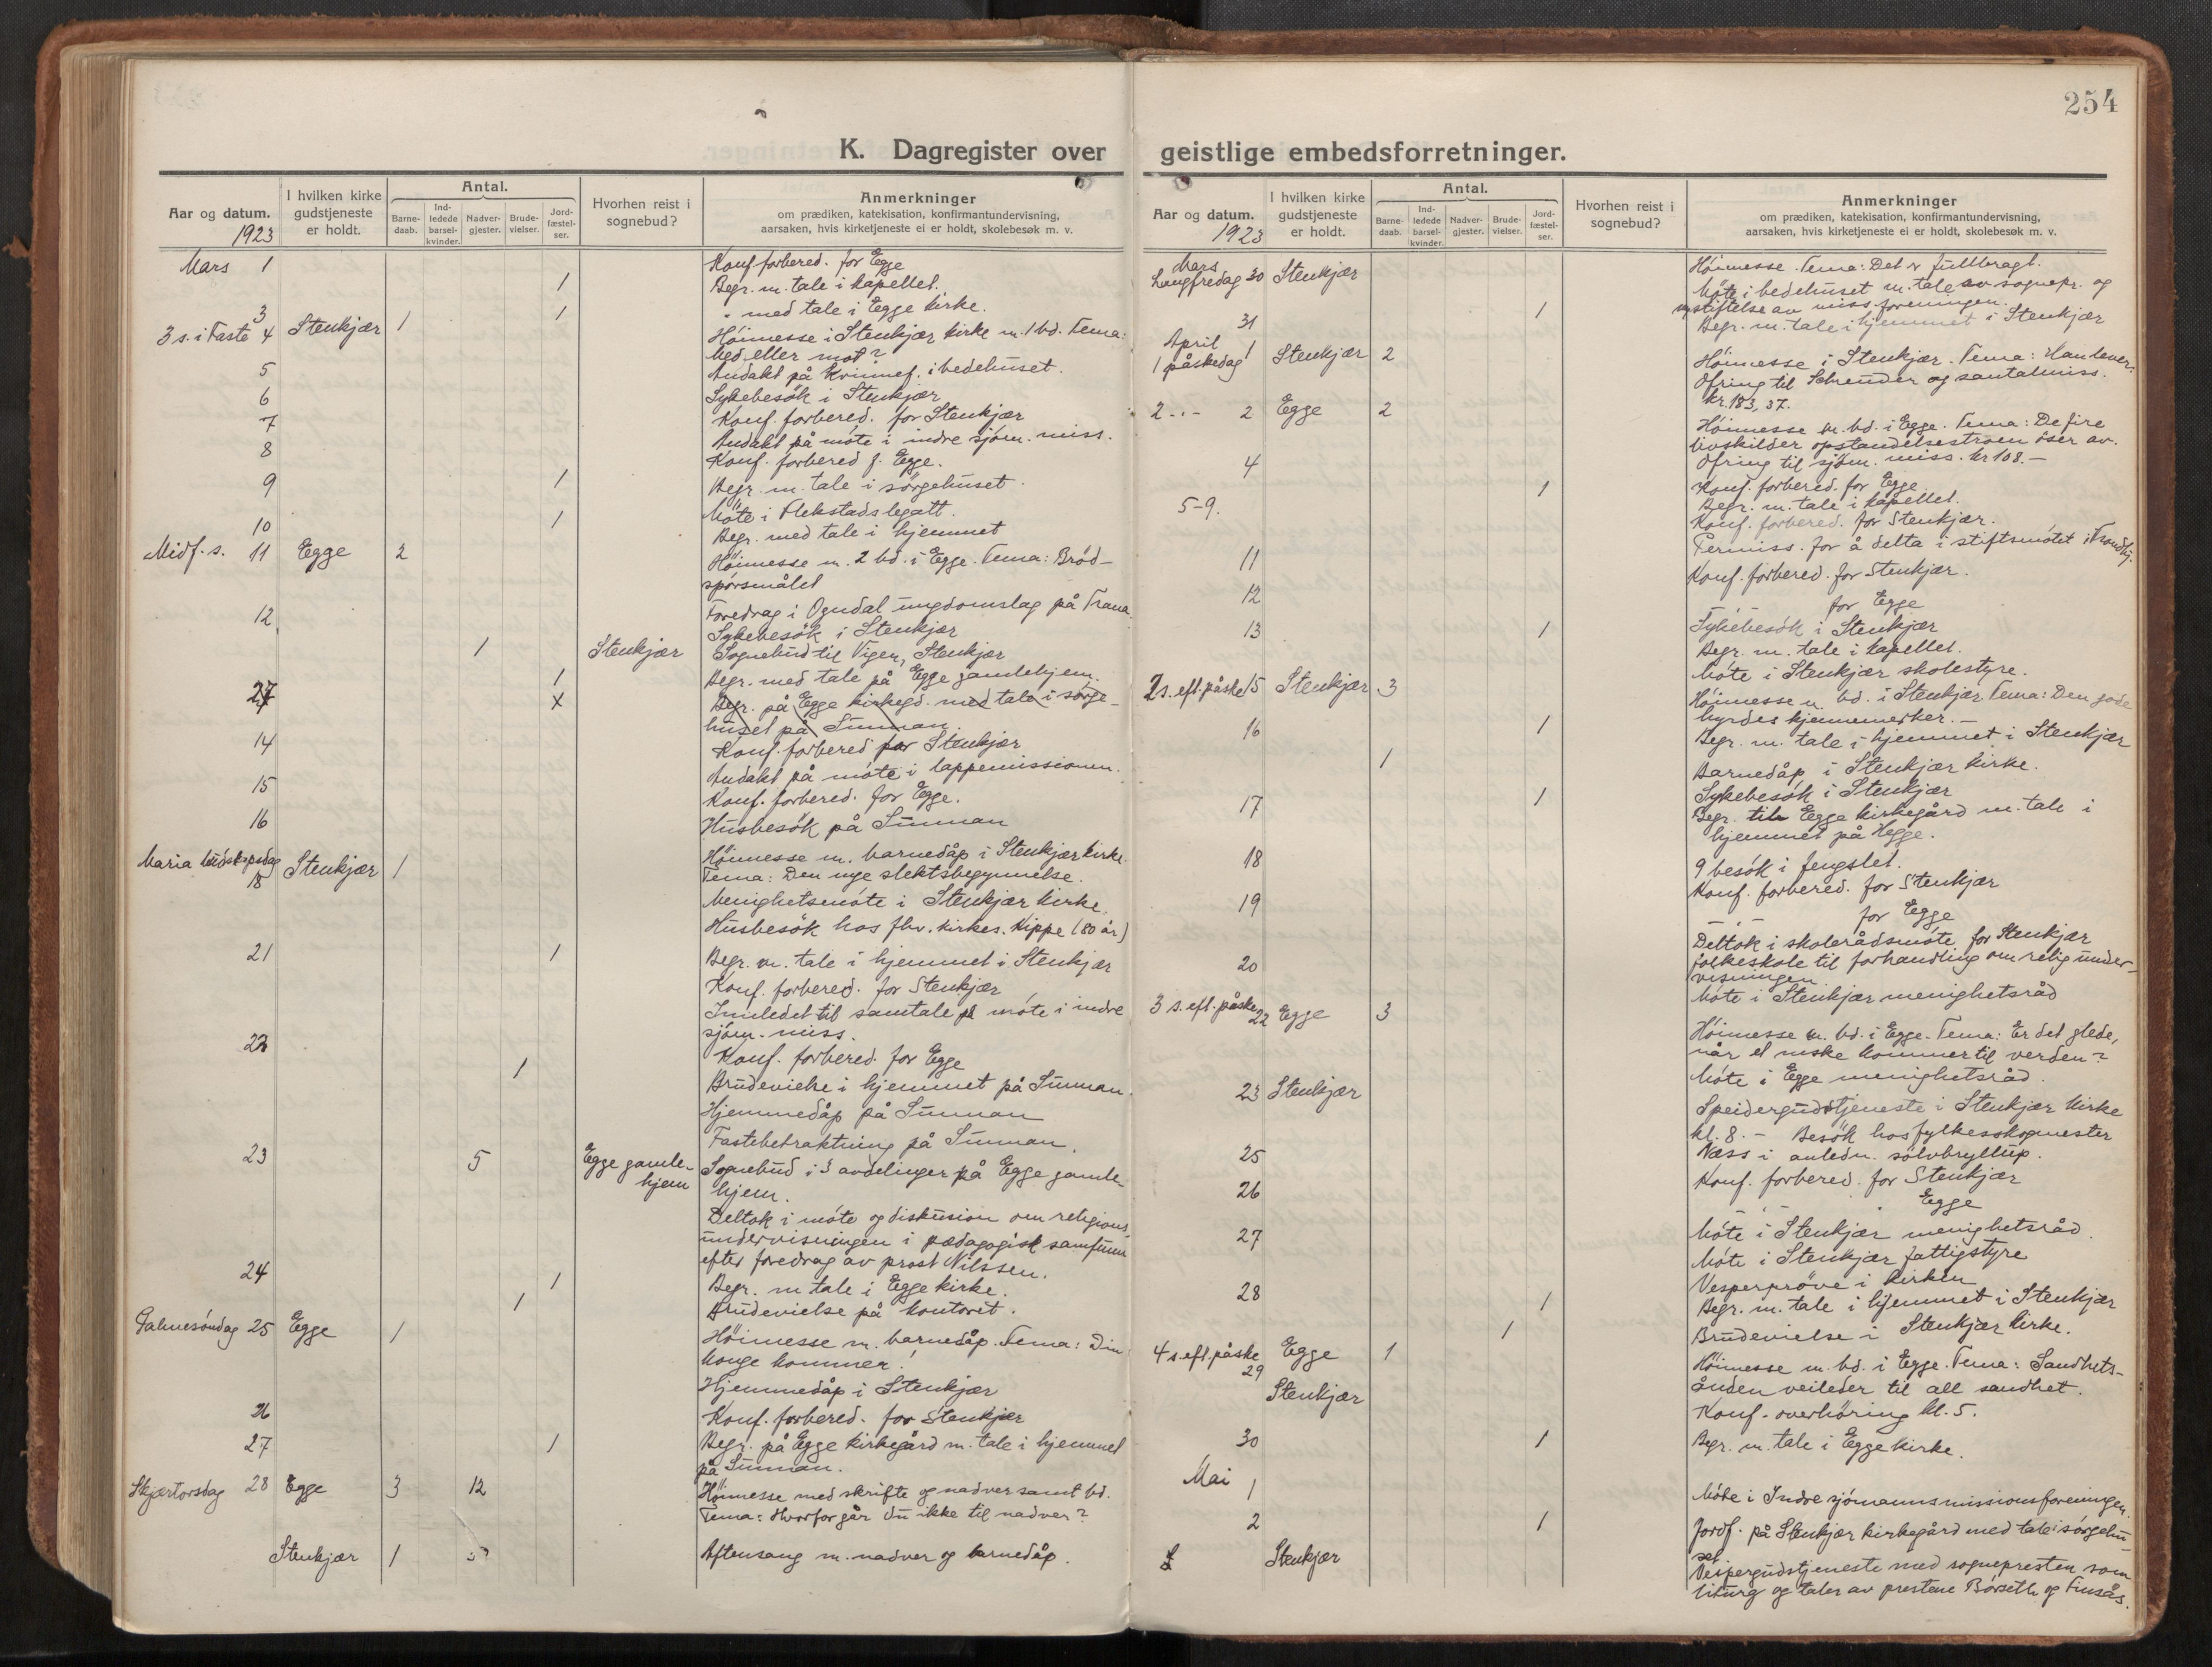 254
K. Dagregister over geistlige embedsforretninger.
Aar og datum.
1923
I hvilken kirke gudstjeneste er holdt.
Antal.
Barne-daab.
Ind-ledede barsel-kvinder.
Nadver-gjester.
Brude-vielser.
Jord-fæstel-ser.
Hvorhen reist i sognebud?
Anmerkninger
om prædiken, katekisation, konfirmantundervisning,
aarsaken, hvis kirketjeneste ei er holdt, skolebesøk m. v.
Mars 1 Konf. forbered. for Egge
1 Begr. m. tale i kapellet.
3 1 " med tale i Egge kirke.
3 s. i Faste 4 Stenkjær 1 Höimesse i Stenkjær kirke m. 1 bd. Tema:
Med eller mot?
5 Andakt på kvinnef. i bedehuset.
6 Sykebesök i Stenkjær
7 Konf. forbered. for Stenkjær
Andakt på möte i indre sjöm. miss.
8 Konf. forbered f. Egge.
9 1 Begr. m. tale i sörgehuset.
Möte i Flekstads legatt.
10 1 Begr. med tale i hjemmet
Midf. s. 11 Egge 2 Höimesse m. 2 bd. i Egge. Tema: Bröd-
spörsmålet
12 Foredrag i Ogndal ungdomslag på Trana
Sykebesök i Stenkjær
1 Stenkjær Sognebud til Vigen, Stenkjær
1 Begr. med tale på Egge gamlehjem.
27 x Begr. på Egge kirkegd. med tale i sörge-
huset på Sunnan.
14 Konf. forbered for Stenkjær
Andakt på möte i lappemissionen.
15 Konf. forbered. for Egge.
16 Husbesök på Sunnan
Maria budskapsdag
18 Stenkjær 1 Höimesse m. barnedåp i Stenkjær kirke.
Tema: Den nye slektsbegynnelse.
Menighetsmöte i Stenkjær kirke.
Husbesök hos fhv. kirkes. Kippe (80 år)
21 1 Begr. m. tale i hjemmet i Stenkjær
Konf. forbered. for Stenkjær
Innledet til samtale på möte i indre
sjöm. miss.
22 Konf. forbered. for Egge
1 Brudevielse i hjemmet på Sunnan.
Hjemmedåp på Sunnan
Fastebetraktning på Sunnan.
23 5 Egge gamle-
hjem Sognebud i 3 avdelinger på Egge gamle-
hjem.
Deltok i möte og diskusion om religions-
undervisningen i pædagogisk samfunn
efter foredrag av prost Nilssen.
24 1 Begr. m tale i Egge kirke.
1 Brudevielse på kontoret.
Palmesöndag 25 Egge 1 Höimesse m. barnedåp. Tema: Din
konge kommer!
Hjemmedåp i Stenkjær
26 Konf. forbered. for Stenkjær
27 1 Begr. på Egge kirkegård m. tale i hjemmet
på Sunnan.
Skjærtorsdag 28 Egge 3 12 Höimesse med skrifte og nadver samt bd.
Tema: Hvorfor går du ikke til nadver?
Stenkjær 1 Aftensang m. nadver og barnedåp.
Aar og datum.
1923
I hvilken kirke gudstjeneste er holdt.
Antal.
Barne-daab.
Ind-ledede barsel-kvinder.
Nadver-gjester.
Brude-vielser.
Jord-fæstel-ser.
Hvorhen reist i sognebud?
Anmerkninger
om prædiken, katekisation, konfirmantundervisning,
aarsaken, hvis kirketjeneste ei er holdt, skolebesøk m. v.
Mars
Langfredag 30 Stenkjær Höimesse. Tema: Det er fullbragt.
Möte i bedehuset m. tale av sognepr. og
nystiftelse av miss.foreningen.
31 1 Begr. m. tale i hjemmet i Stenkjær
April
1 påskedag 1 Stenkjær 2 Höimesse i Stenkjær. Tema: Han lever.
Ofring til Schreuder og santalmiss.
kr. 183,37.
2 - " - 2 Egge 2 Höimesse m. bd. i Egge. Tema: De fire
livskilder opstandelsestroen öser av.
Ofring til sjöm. miss. kr 108.-
4 Konf. forbered. for Egge
1 Begr. m. tale i kapellet.
Konf. forbered. for Stenkjær.
5-9. Permiss. for å delta i stiftsmötet i Trondhj.
11 Konf. forbered. for Stenkjær.
12 for Egge
13 Sykebesök i Stenkjær
1 Begr. m. tale i kapellet.
Möte i Stenkjær skolestyre.
2 s. eft. påske 15 Stenkjær 3 Höimesse m. bd. i Stenkjær. Tema: Den gode
hyrdes kjennemerker.-
16 1 Begr. m. tale i hjemmet i Stenkjær
1 Barnedåp i Stenkjær kirke.
Sykebesök i Stenkjær
17 1 Begr. til Egge kirkegård m. tale i
hjemmet på Hegge.
18 9 besök i fengslet.
Konf. forbered. for Stenkjær
19 - " - for Egge
Deltok i skolerådsmöte for Stenkjær
folkeskole til forhandling om relig under-
visningen
20 Möte i Stenkjær menighetsråd
3 s. eft. påske 22 Egge 3 Höimesse m. bd. i Egge. Tema: Er det glede,
når et mske kommer til verden?
Möte i Egge menighetsråd.
23 Stenkjær Speidergudstjeneste i Stenkjær kirke
kl. 8.- Besök hos fylkesskogmester
Næss i anledn. sölvbryllup.
25 Konf. forbered. for Stenkjær
26 - " - Egge
Möte i Stenkjær menighetsråd.
27 Möte i Stenkjær fattigstyre
Vesperpröve i kirken
28 1 Begr. m. tale i hjemmet i Stenkjær
1 Brudevielse i Stenkjær kirke.
4 s. eft. påske
29 Egge 1 Höimesse m. bd. i Egge. Tema: Sandhets-
ånden veileder til all sandhet.
Stenkjær Konf. overhöring kl. 5.
30 1 Begr. m. tale i Egge kirke.
Mai 1 Möte i Indre sjömannsmissionsforeningen.
2 1 Jordf. på Stenkjær kirkegård med tale i sörgehu-
set
Stenkjær Vespergudstjeneste med sognepresten som
liturg og taler av prestene Börseth og Finsås.